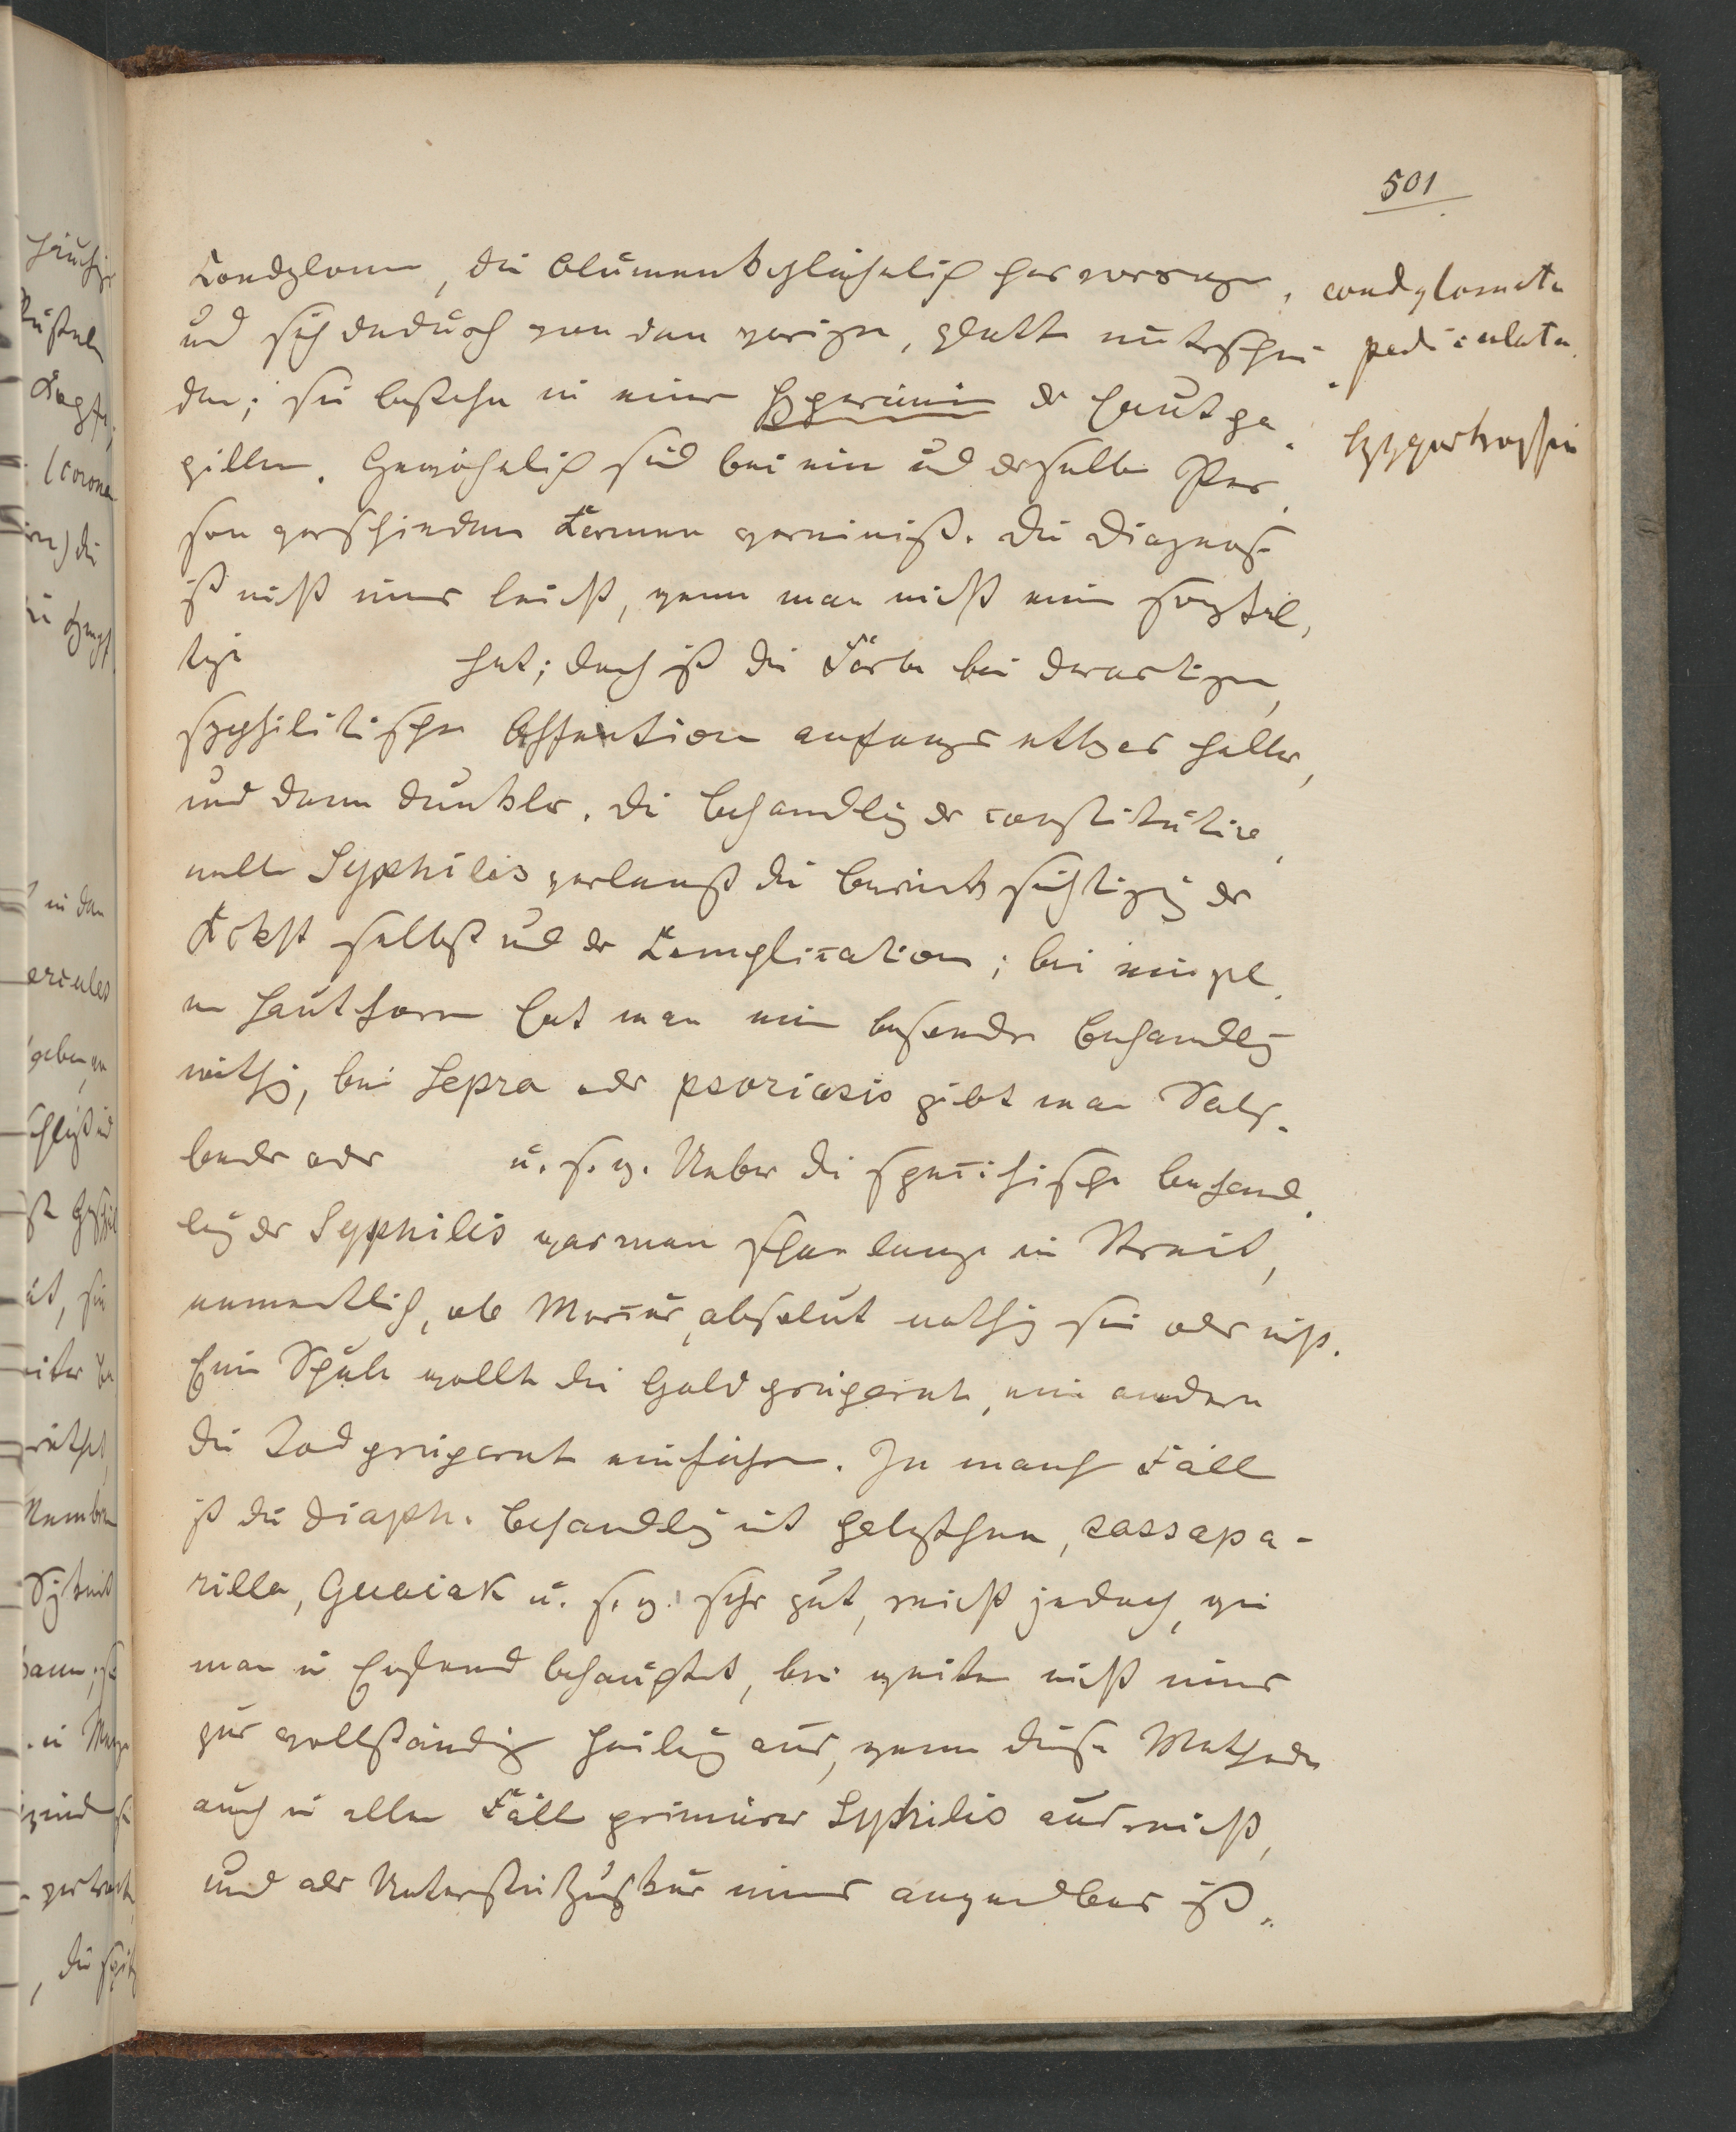 501
Condylome, die blumenkohlähnlich hervorrage, condylomata
und sich dadurch von den vorigen, glatt unterschei pediculata
den; sie bestehn in einer Hyperämie der Hautpa Hypertrophie
pillen. Gewöhnlich sind bei ein und derselbe Per
son verschieden Formen vereinigt. Die Diagnose
ist nicht immer leicht, wenn man nicht eine sorgfäl
tige hat; doch ist die Farbe bei derartigen
syphilitischen Affection anfangs etwas heller,
und dann dunkler. Die Behandlg der constitutio
nelle Syphilis verlangt die Berücksichtigung der
selbst und der Complication; bei einzel
n Hautform hat man eine besondre Behandlg
nöthig, bei Lepra oder psoriasis gibt man Salz
bäder oder u. s. w. Ueber die specifische Behand
lung der Syphilis war man schon lange in Streit,
namentlich, ob Mercur absolut nöthig sei oder nicht.
Eine Schule wollte die Goldpräparate, eine andere
die Jodpräparate einführen. In manch Fäll
ist die diaph. Behandlg mit Holzthee, sassapa-
rilla, Guaiak u. s. w. sehr gut, reicht jedoch, wie
man in England behauptet, bei weitem nicht immer
zur vollständig Heilung aus, wenn diese Methode
auch in allen Fäll primärer Syphilis ausreicht,
und als Unterstützugskur immer anwendbar ist.